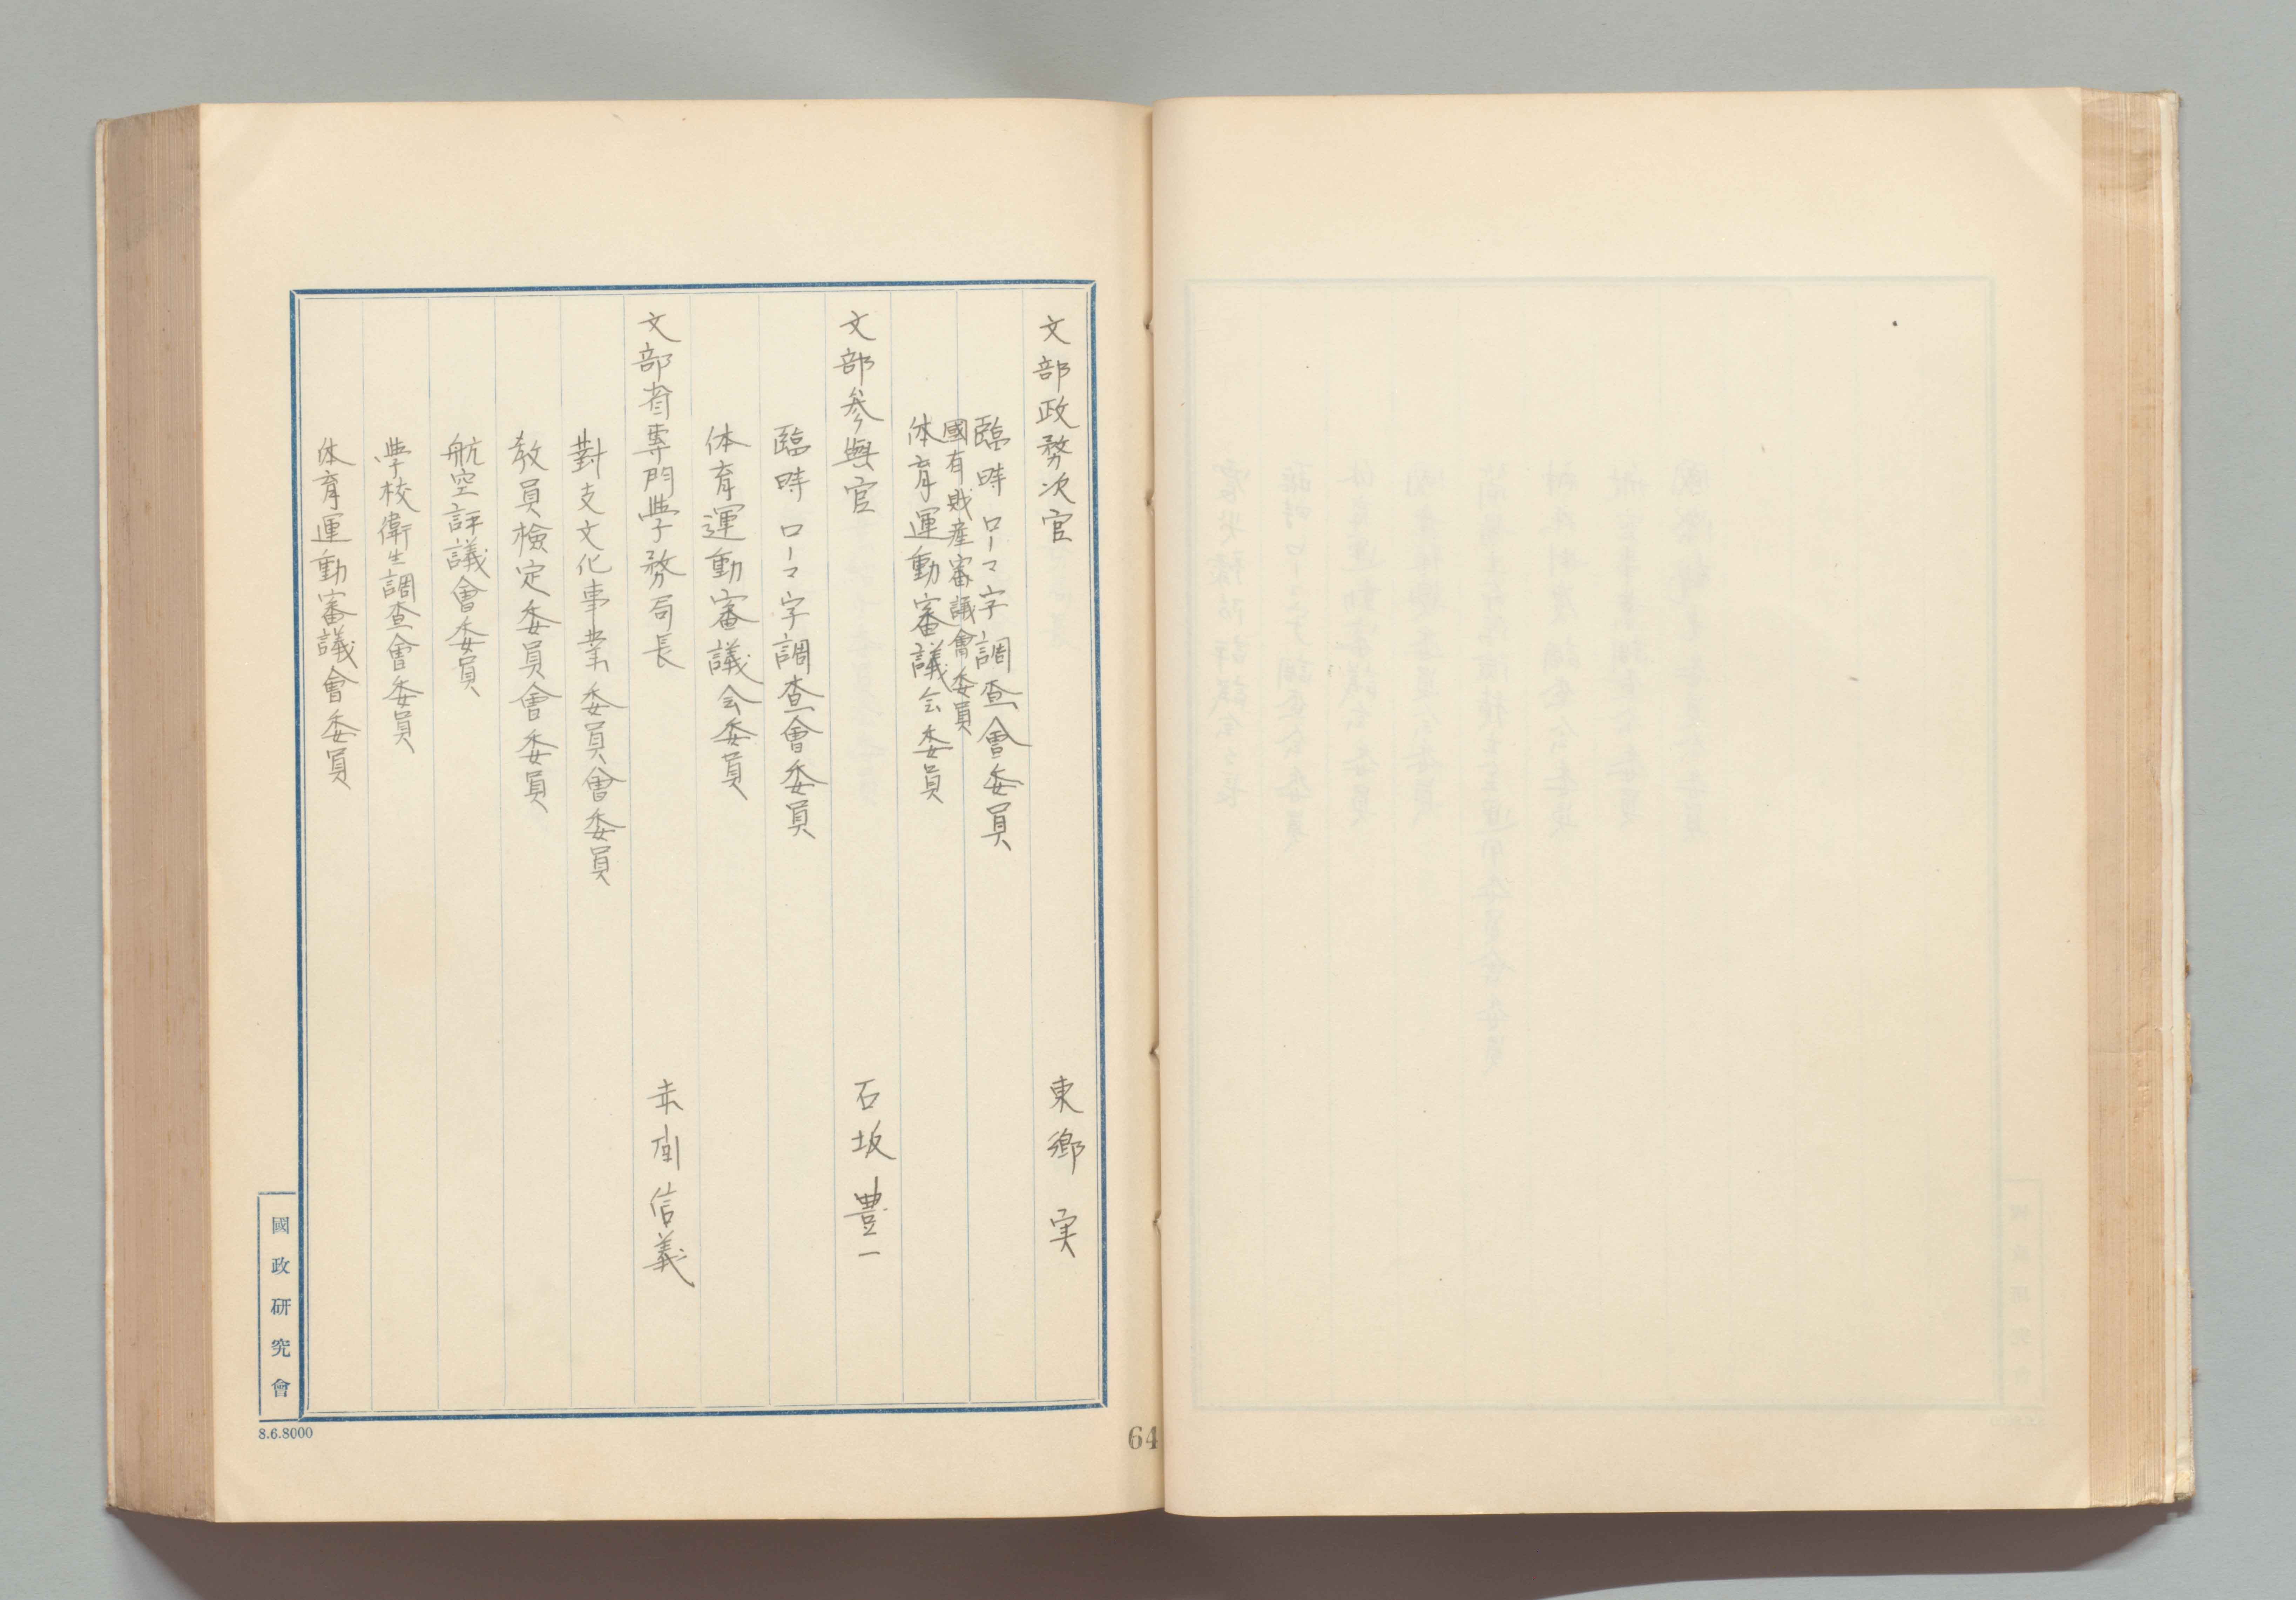 文部政務次官　東郷実
臨時ローマ字調査會委員
國有財産審議會委員
体育運動審議会委員
文部参與官　石坂豊一
臨時ローマ字調査會委員
体育運動審議会委員
文部省専門學務局長　赤間信義
對支文化事業委員會委員
教員檢定委員會委員
航空評議會委員
學校衛生調査會委員
体育運動審議會委員
國政研究會
8.6.8000
64